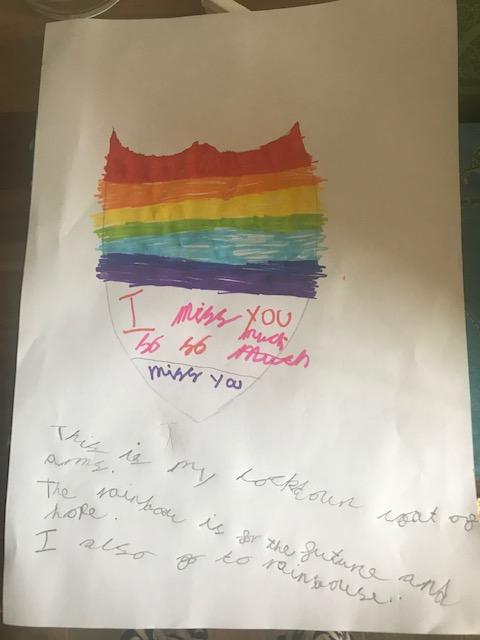 I miss YOU
so so much much
miss you
This is my lockdown coat of
arms.
The rainbow is for the future and
hope.
I also go to rainbows..